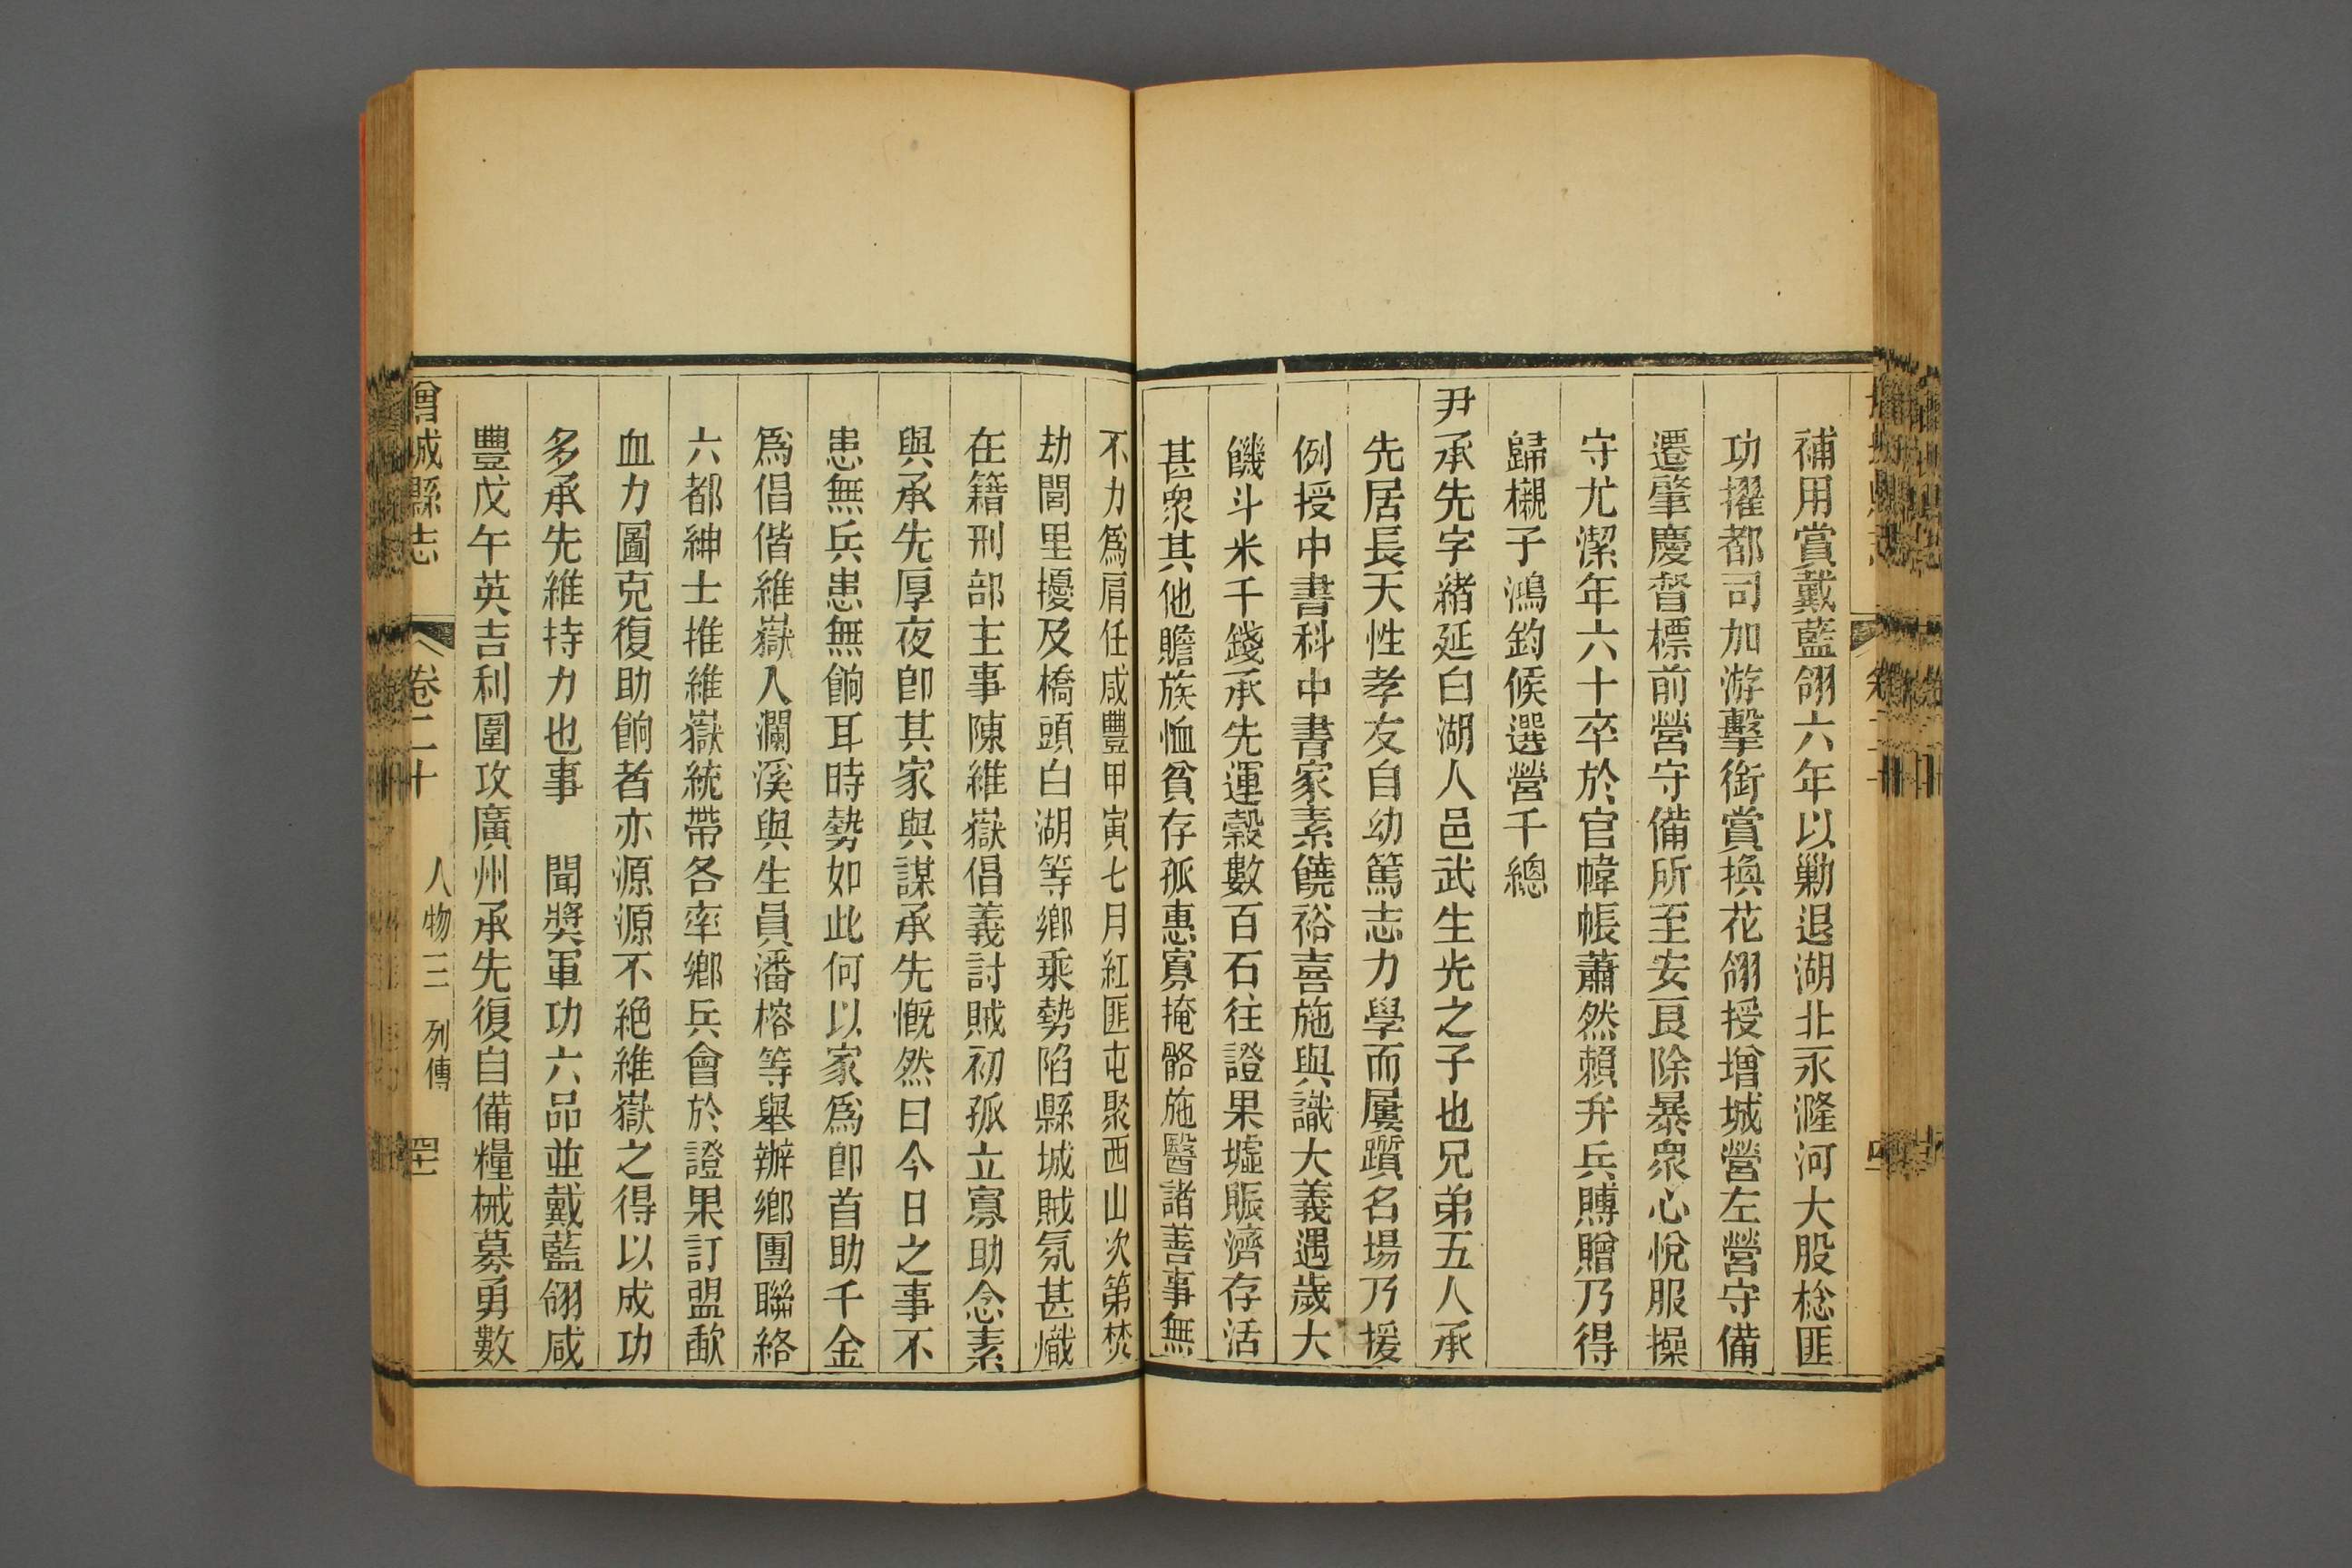 補用賞戴藍翎六年以勦退湖北永漋河大股捻匪
功擢都司加游擊銜賞換花翎授增城營左營守備
遷肇慶督標前營守備所至安良除暴衆心悅服操
守尤潔年六十卒於官幃帳蕭然賴弁兵賻贈乃得
歸櫬子鴻鈞候選營千總
尹承先字緒延白湖人邑武生光之子也兄弟五人承
先居長天性孝友自幼篤志力學而屢躓名場乃援
例授中書科中書家素饒裕喜施與識大義遇歲大
饑斗米千錢承先運穀數百石往證果墟賑濟存活
甚衆其他贍族恤貧存孤惠寡掩骼施醫諸善事無
不力爲肩任咸豐甲寅七月紅匪屯聚西山次第焚
劫閭里擾及橋頭白湖等鄉乘勢陷縣城賊氛甚熾
在籍刑部主事陳維嶽倡義討賊初孤立寡助念素
與承先厚夜卽其家與謀承先慨然曰今日之事不
患無兵患無餉耳時勢如此何以家爲卽首助千金
爲倡偕維嶽人瀾溪與生員潘榕等舉辦鄉團聯絡
六都紳士推維嶽統帶各率鄉兵會於證果訂盟歃
血力圖克復助餉者亦源源不絕維嶽之得以成功
多承先維持力也事　聞獎軍功六品並戴藍翎咸
豐戊午英吉利圍攻廣州承先復自備糧械募勇數
增城縣志　卷二十　人物三　列傳